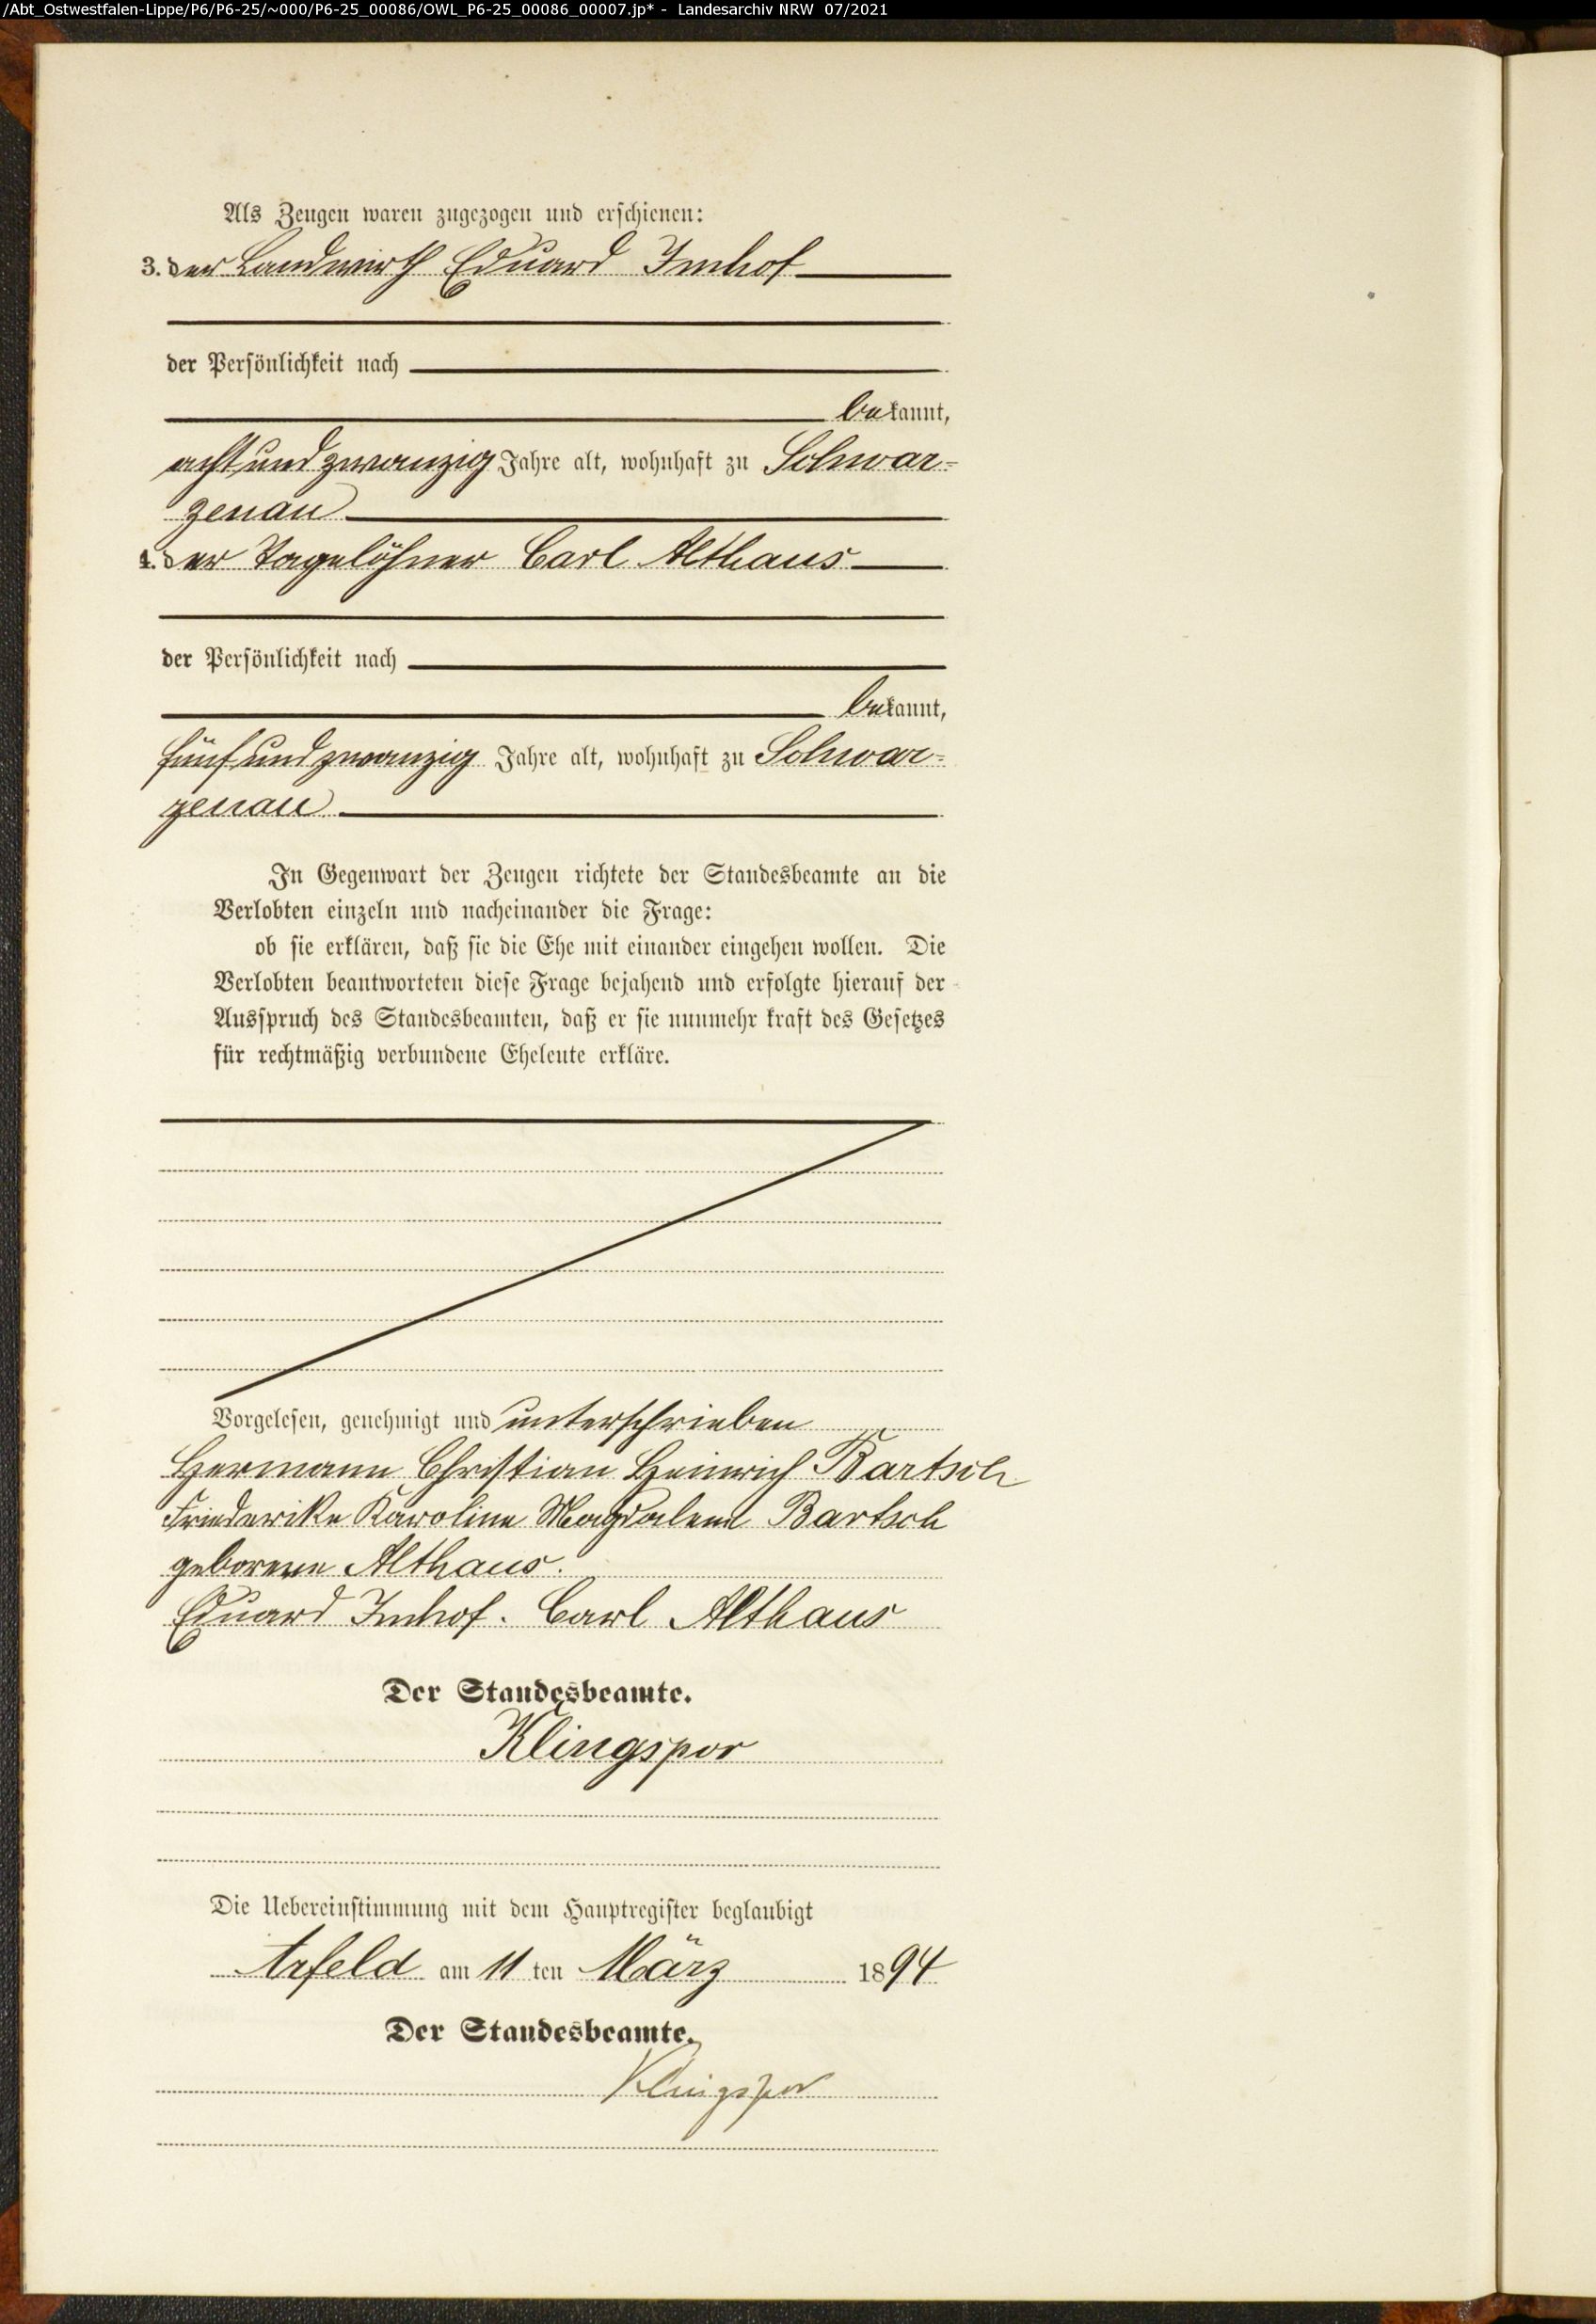 /Abt_Ostwestfalen-Lippe/P6/P6-25/~000/P6-25_00086/OWL_P6-25_00086_00007.jp* - Landesarchiv NRW 07/2021
Als Zeugen waren zugezogen und erschienen:
3. der Landwirth Eduard Imhof
der Persönlichkeit nach
bekannt,
acht und zwanzig Jahre alt, wohnhaft zu Schwar-
zenau
4. der Tagelöhner Carl Althaus
der Persönlichkeit nach
bekannt,
fünf und zwanzig Jahre alt, wohnhaft zu Schwar-
zenau
In Gegenwart der Zeugen richtete der Standesbeamte an die
Verlobten einzeln und nacheinander die Frage:
ob sie erklären, daß sie die Ehe mit einander eingehen wollen. Die
Verlobten beantworteten diese Frage bejahend und erfolgte hierauf der
Ausspruch des Standesbeamten, daß er sie nunmehr kraft des Gesetzes
für rechtmäßig verbundene Eheleute erkläre.
Vorgelesen, genehmigt und unterschrieben
Hermann Christian Heinrich Bartsch
Friederike Karoline Magdalene Bartsch
geborene Althaus.
Eduard Imhof. Carl Althaus
Der Standesbeamte.
Klingspor
Die Uebereinstimmung mit dem Hauptregister beglaubigt
Arfeld am 11 ten März 1894
Der Standesbeamte.
Klingspor